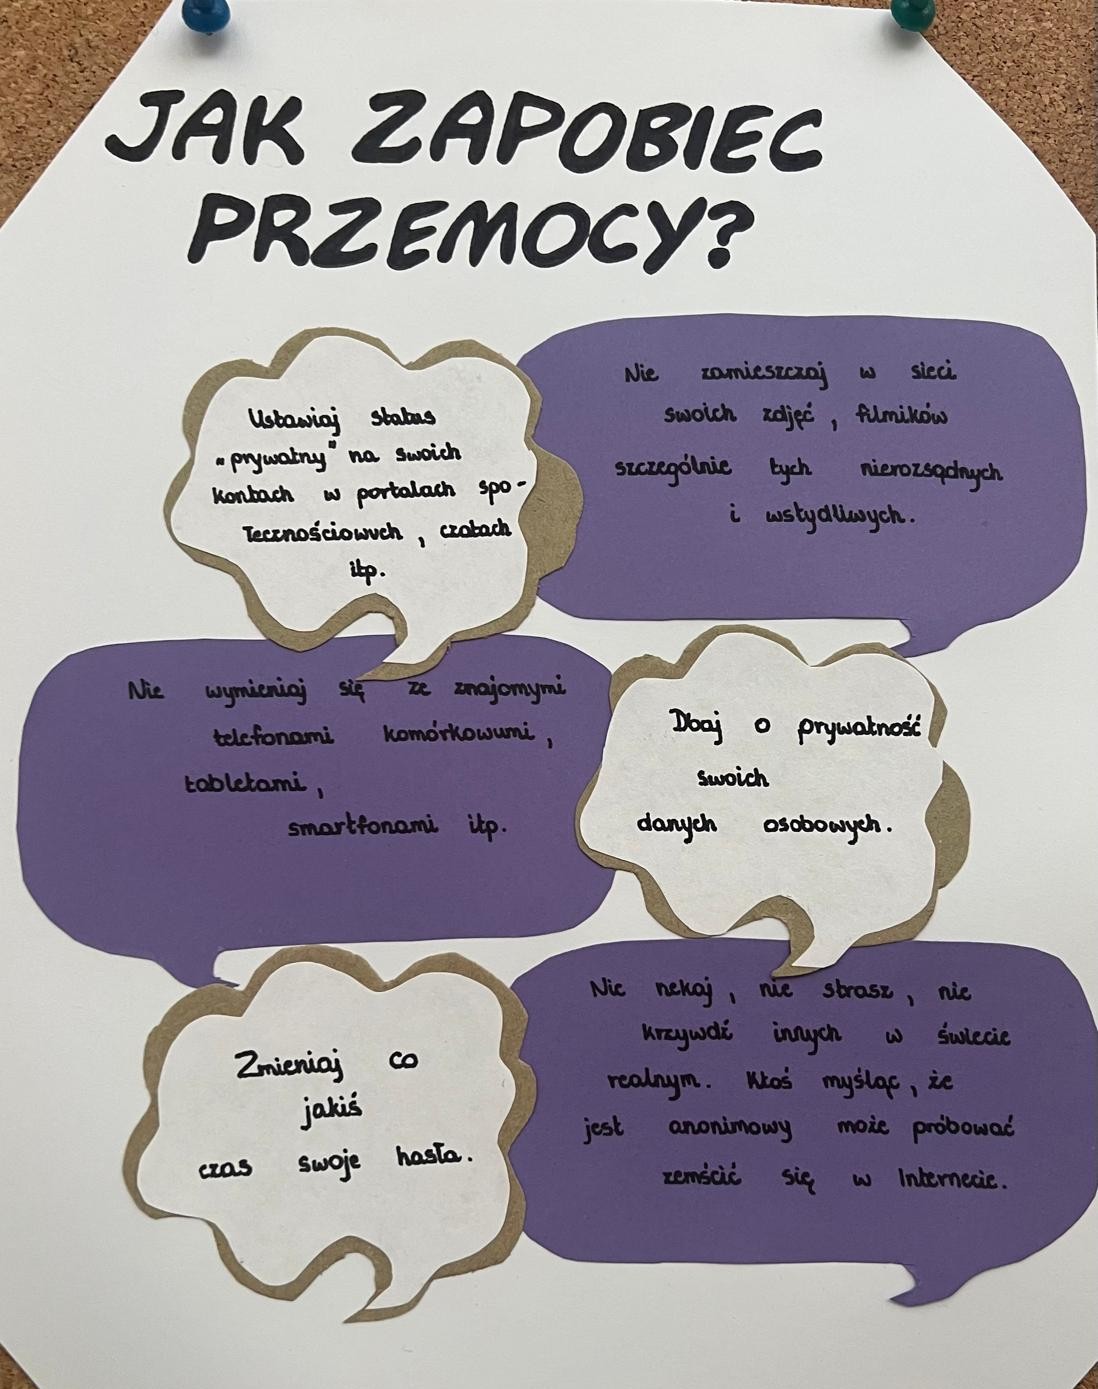 JAK ZAPOBIEC
PRZEMOCY?
Ustawiaj status
„prywatny" na swoich
kontach w portalach spo-
łecznościowych, czatach
itp.
Nie zamieszczaj w sieci
swoich zdjęć, filmików
szczególnie tych nierozsądnych
i wstydliwych.
Nie wymieniaj się ze znajomymi
telefonami komórkowymi,
tabletami,
smartfonami itp.
Dbaj o prywatność
swoich
danych osobowych.
Zmieniaj co
jakiś
czas swoje hasła.
Nie nękaj, nie strasz, nie
krzywdź innych w świecie
realnym. Ktoś myśląc, że
jest anonimowy może próbować
zemścić się w Internecie.